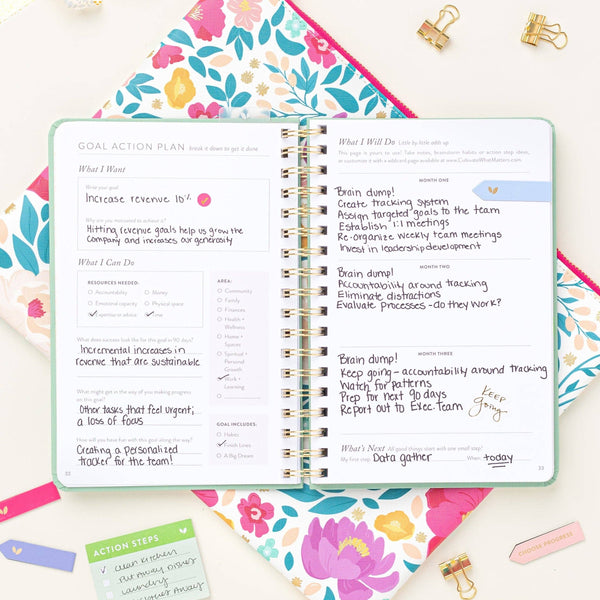 GOAL ACTION PLAN break it down to get it done
What I Want
Write your goal.
Increase revenue 10%
Why are you motivated to achieve it?
Hitting revenue goals help us grow the
company and increases our generosity
What I Can Do
RESOURCES NEEDED:
Accountability
Money
Emotional capacity
Physical space
expertise or advice
time
AREA:
Community
Family
Finances
Health +
Wellness
Home +
Spaces
Spiritual +
Personal
Growth
Work +
Learning
What does success look like for this goal in 90 days?
Incremental increases in
revenue that are sustainable
What might get in the way of you making progress
on this goal?
Other tasks that feel urgent;
a loss of focus
GOAL INCLUDES:
Habits
Finish Lines
A Big Dream
How will you have fun with this goal along the way?
Creating a personalized
tracker for the team!
32
What I Will Do Little by little adds up
This page is yours to use! Take notes, brainstorm habits or action step ideas,
or customize it with a wildcard page available at www.CultivateWhatMatters.com.
MONTH ONE
Brain dump!
Create tracking system
Assign targeted goals to the team
Establish 1:1 meetings
Re-organize weekly team meetings
Invest in leadership development
MONTH TWO
Brain dump!
Accountability around tracking
Eliminate distractions
Evaluate processes - do they work?
MONTH THREE
Brain dump!
Keep going - accountability around tracking
Watch for patterns
Prep for next 90 days
Report out to Exec. Team
KEEP
Going
What's Next All good things start with one small step!
My first step: Data gather When: today
33
ACTION STEPS
clean kitchen
Put Away Dishes
Laundry
Clothes Away
CHOOSE PROGRESS